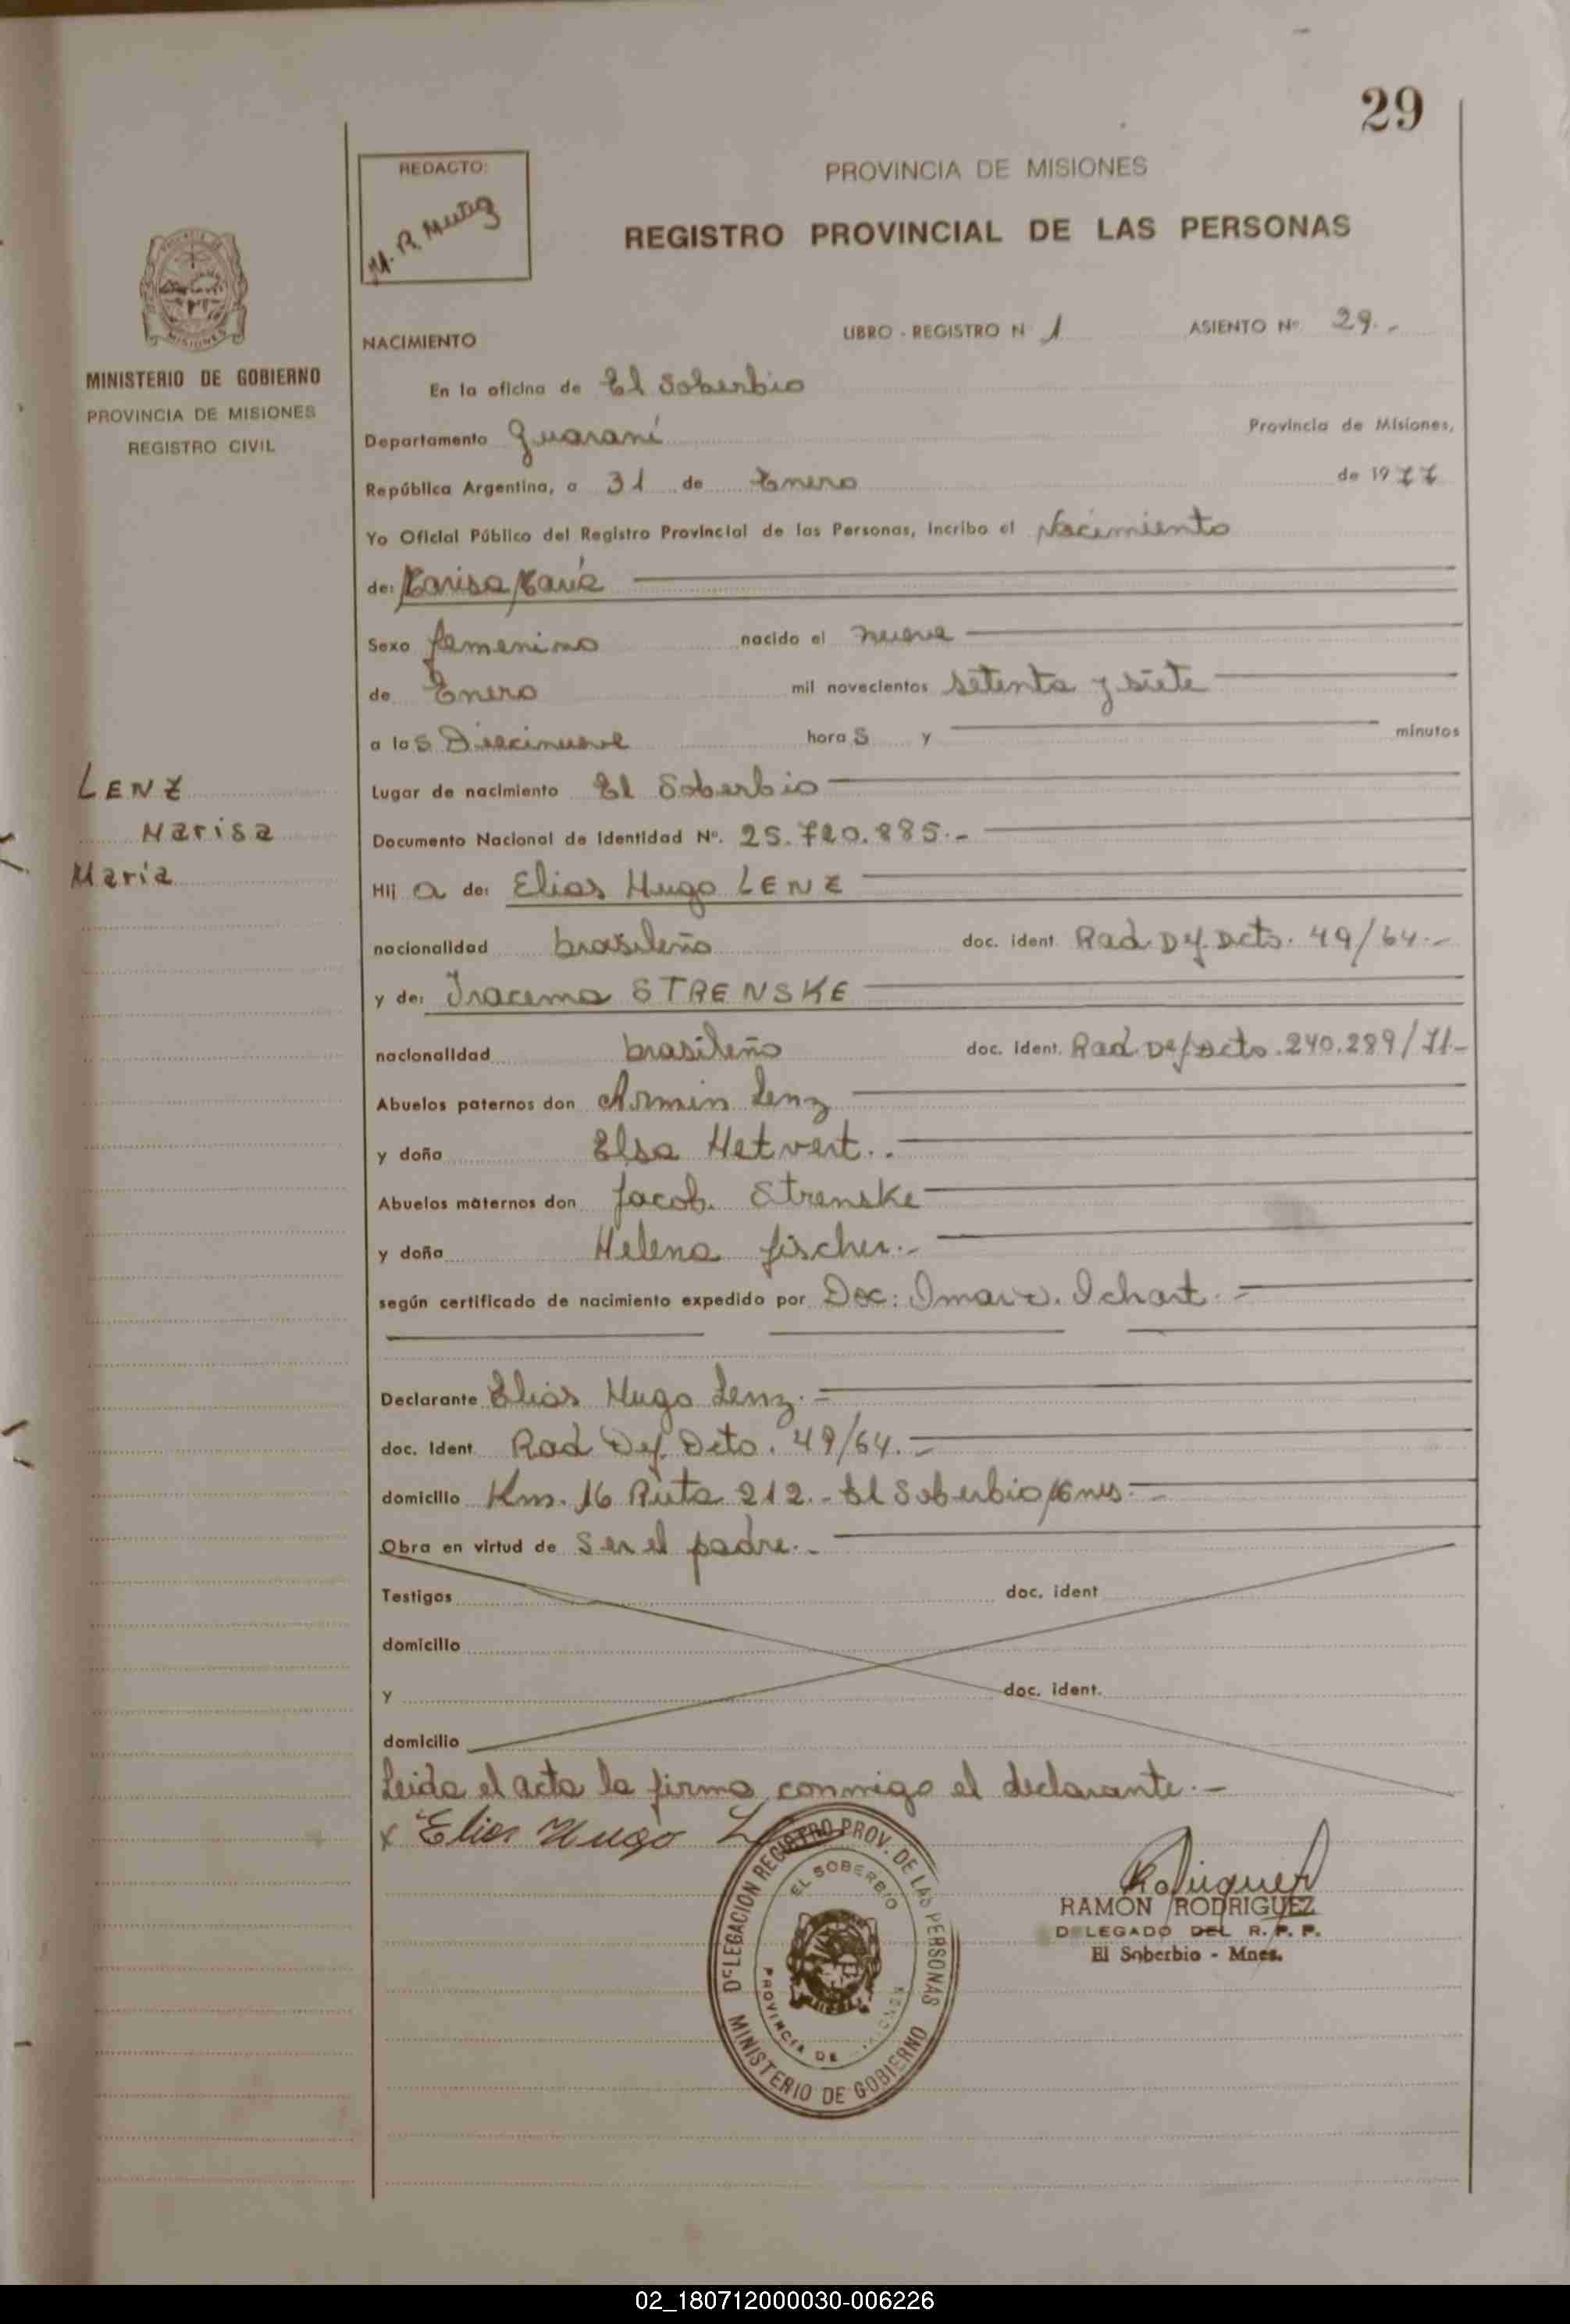 29
REDACTO:
PROVINCIA DE MISIONES
REGISTRO PROVINCIAL DE LAS PERSONAS
MINISTERIO DE GOBIERNO
PROVINCIA DE MISIONES
REGISTRO CIVIL
NACIMIENTO LIBRO - REGISTRO N 1 ASIENTO Nº 29.-
En la oficina de El Soberbio
Departamento Guaraní Provincia de Misiones,
República Argentina, a 31 de Enero de 1977
Yo Oficial Público del Registro Provincial de las Personas, incribo el Nacimiento
de: Marisa María
Sexo femenino nacido el nueve
de Enero mil novecientos setenta y siete
a las Diecinueve horas y minutos
LENZ
Marisa
María
Lugar de nacimiento El Soberbio
Documento Nacional de Identidad Nº. 25.720.885.-
Hija de: Elias Hugo LENZ
nacionalidad brasileño doc. ident Rad Def. Dcto. 49/64.-
y de: Iracema STRENSKE
nacionalidad brasileño doc. ident. Rad Def Dcto. 240.289/71-
Abuelos paternos don Armin Lenz
y doña Elsa Hetvert..
Abuelos maternos don Jacob. Strenske
y doña Helena fischer.-
según certificado de nacimiento expedido por Doc: Ichart.-
Declarante Elias Hugo Lenz.-
doc. Ident Rad Def. Dcto. 49/64.-
domicilio Km. 16 Ruta 212.- El Soberbio
Obra en virtud de Ser el padre.-
Testigos doc. ident
domicilio
y doc. ident.
domicilio
Leida el acta la firma conmigo el declarante.-
x Elias Hugo
DELEGACION REGISTRO PROV. DE LAS PERSONAS
EL SOBERBIO
PROVINCIA DE
MINISTERIO DE GOBIERNO
Rodriguez
RAMÓN RODRIGUEZ
DELEGADO DEL R. P. P.
El Soberbio - Mnes.
02_180712000030-006226